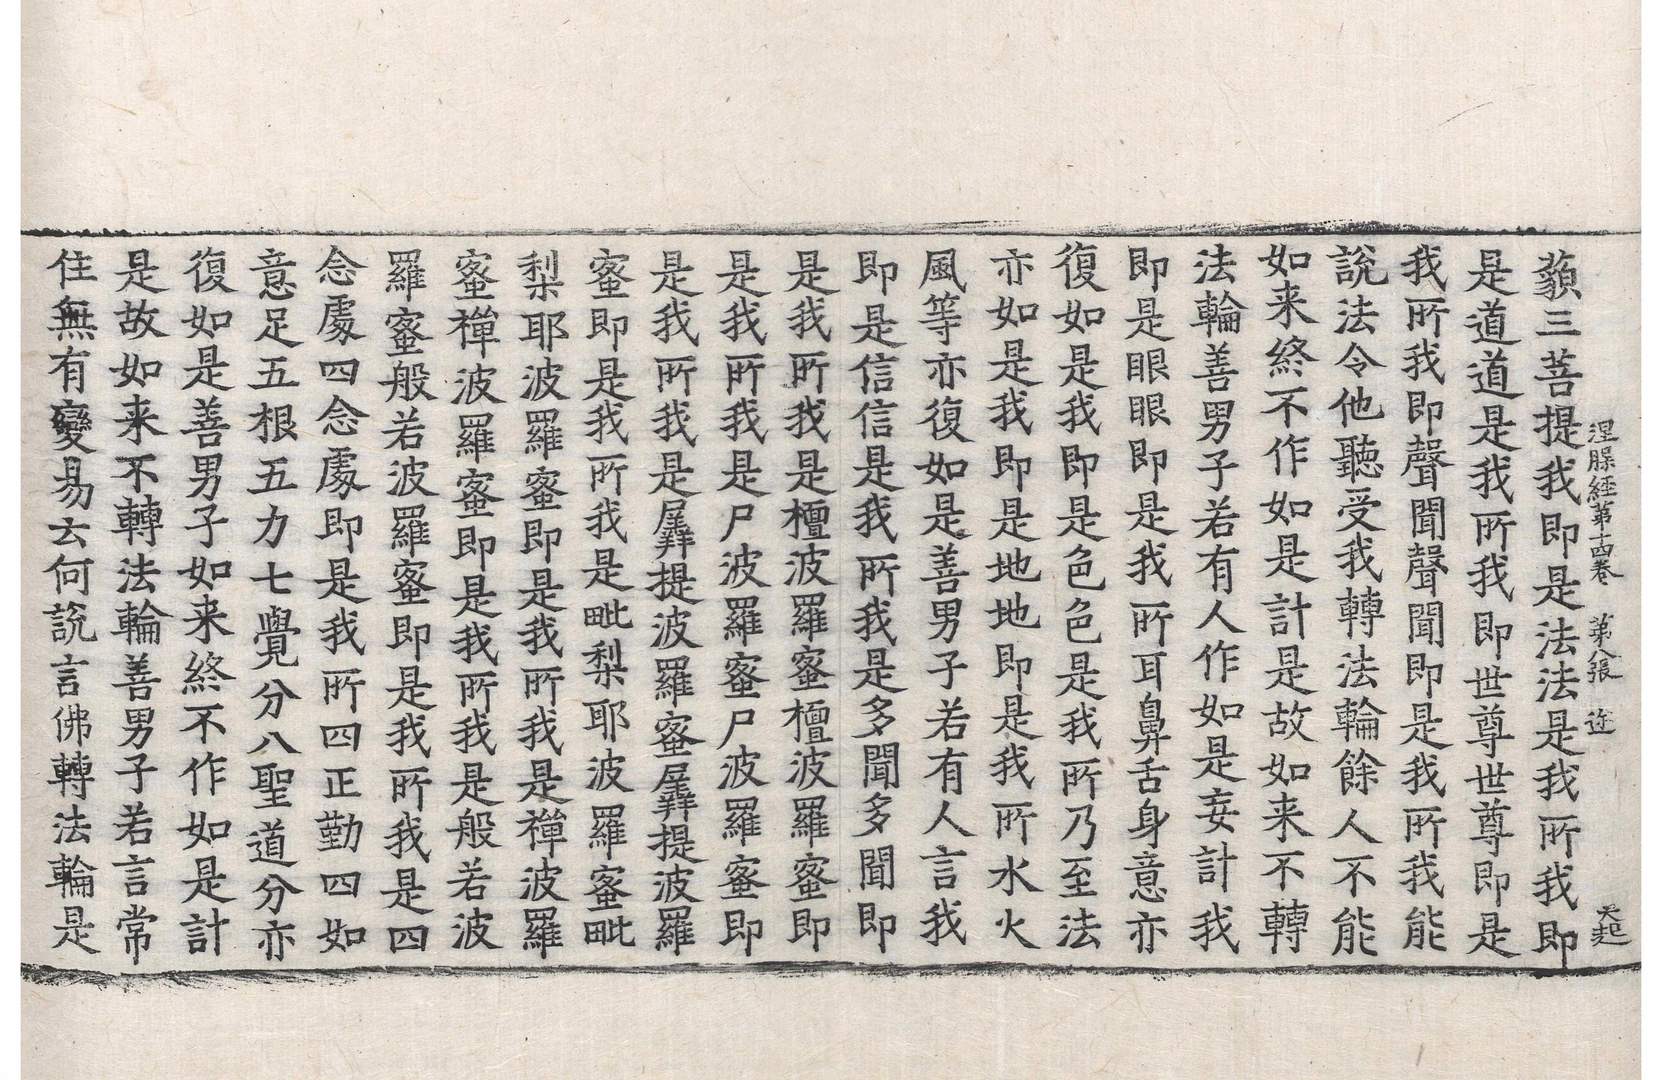 涅脵経第十四卷　第八張　迚　天起
藐三菩提我即是法法是我所我即
是道道是我所我即世尊世尊即是
我所我即聲聞聲聞即是我所我能
說法令他聽受我轉法輪餘人不能
如来終不作如是計是故如来不轉
法輪善男子若有人作如是妄計我
即是眼眼即是我所耳鼻舌身意亦
復如是我即是色色是我所乃至法
亦如是我即是地地即是我所水火
風等亦復如是善男子若有人言我
即是信信是我所我是多聞多聞即
是我所我是檀波羅蜜檀波羅蜜即
是我所我是尸波羅蜜尸波羅蜜即
是我所我是羼提波羅蜜羼提波羅
蜜即是我所我是毗梨耶波羅蜜毗
梨耶波羅蜜即是我所我是禪波羅
蜜禪波羅蜜即是我所我是般若波
羅蜜般若波羅蜜即是我所我是四
念處四念處即是我所四正勤四如
意足五根五力七覺分八聖道分亦
復如是善男子如来終不作如是計
是故如来不轉法輪善男子若言常
住無有變易云何說言佛轉法輪是